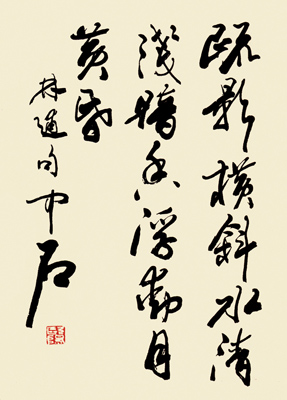 疏影横斜水清
淺暗香浮動月
黄昏
林逋句中石